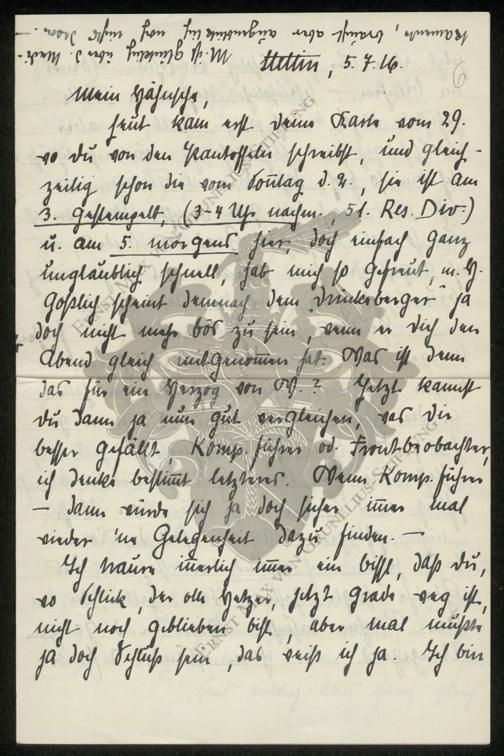 Stettin, 5.7.16.
Mein Hähnsche,
heut kam erst deine Karte vom 29.
wo du von den Kartoffeln schreibst, und gleich-
zeitig schon die vom Sonntag d. 2., sie ist am
3. gestempelt, (3-4 Uhr nachm., 51. Res. Div.)
u. am 5. morgens hier, doch einfach ganz
unglaublich schnell, hat mich so gefreut, u. H.
Goßlich scheint demnach dem "Drückeberger" ja
doch nicht mehr bös zu sein, wenn er dich den
Abend gleich mitgenommen hat. Was ist denn
das für ein Herzog von W.? Jetzt kannst
du dann ja nun gut vergleichen, was dir
besser gefällt Komp. führer od. Frontbeobachter,
ich denke bestimmt letzteres. Wenn Komp. führer
— dann würde sich ja doch sicher immer mal
wieder 'ne Gelegenheit dazu finden. —
Ich traure innerlich immer ein bissl, daß du,
wo Schlick, der olle Hetzer, jetzt grade weg ist,
nicht noch geblieben bist, aber mal mußte
ja doch Schluß sein, das weiß ich ja. Ich bin
ERNST MAX VON GRUNELIUS-STIFTUNG
ERNST MAX VON GRUNELIUS-STIFTUNG